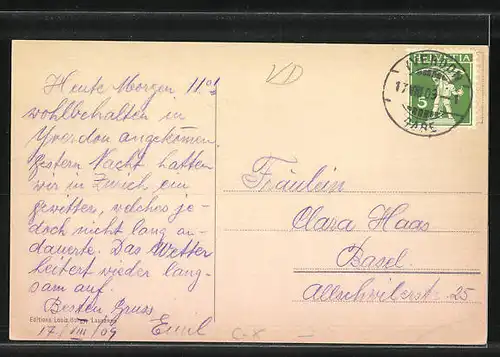 Heute Morgen 11 Uhr
wohlbehalten in
Yverdon angekommen.
gestern Nacht hatten
wir in Zürich ein
gewitter, welches je-
doch nicht lang an-
dauerte. Das Wetter
heitert wieder lang-
sam auf.
Besten Gruss
17/VIII/09 Emil
VD
HELVETIA
5
YVERDON
17 VIII 09
GARE
Fräulein
Clara Haas
Basel
Allschwilerstr. 25
C-X